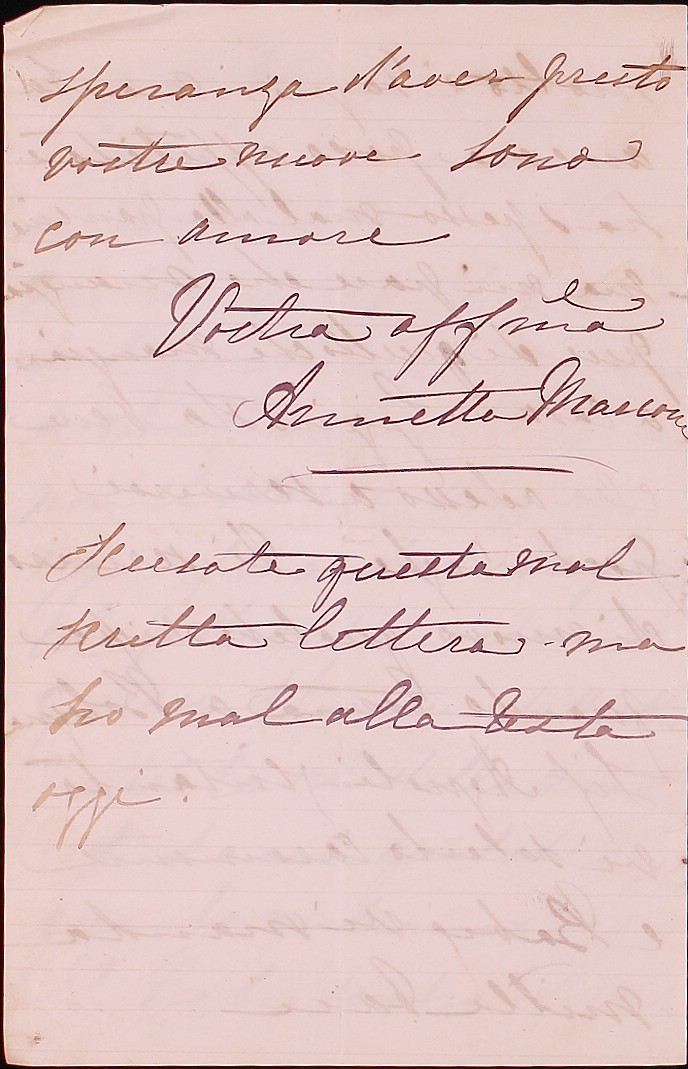 speranza d'aver presto
vostre nuove sono
con amore
Vostra affma
Annetta Marconi
Scusate questa mal
scritta lettera - ma
ho mal alla testa
oggi.